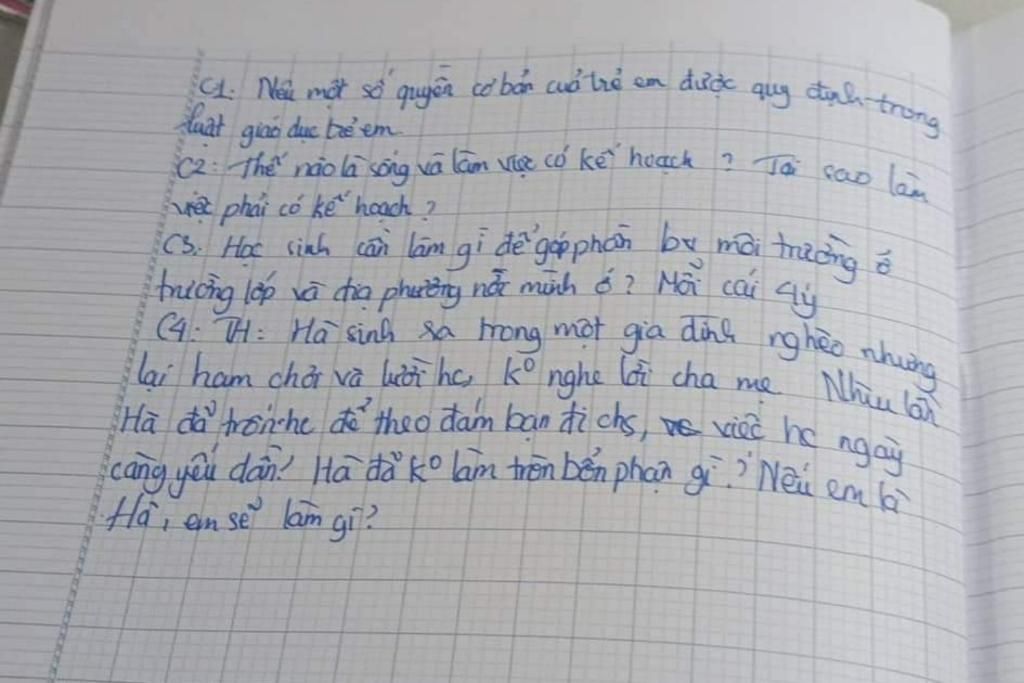 C1. Nêu một số quyền cơ bản cuả trẻ em được quy định trong
luật giáo dục trẻ em
C2: Thế nào là sống và làm việc có kế hoạch ? Tại sao làm
việc phải có kế hoạch ?
C3. Học sinh cần làm gì để góp phần bv môi trường ở
trường lớp và địa phương nơi mình ở? Mỗi cái 4ý
C4: TH: Hà sinh ra trong một gia đình nghèo nhưng
lại ham chơi và lười hc, k° nghe lời cha mẹ Nhiều lần
Hà đã trốn hc để theo đám bạn đi chs, việc hc ngày
càng yếu dần! Hà đã k° làm tròn bổn phận gì? Nếu em là
Hà, em sẽ làm gì?